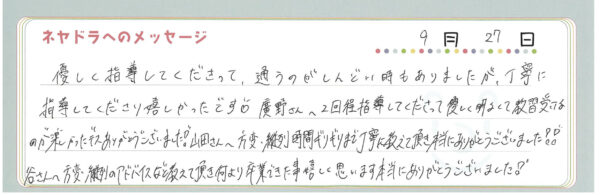 ネヤドラへのメッセージ
9月27日
優しく指導してくださって、通うのがしんどい時もありましたが、丁寧に
指導してくださり嬉しかったです 廣野さんへ2回程指導してくださって優しく明るくて教習受ける
のが楽しかったですありがとうございました!!山田さんへ方変・縦列時間ギリギリまで丁寧に教えて頂き本当にありがとうございました!!
谷さんへ方変・縦列のアドバイスなど教えて頂き何より卒業できた事嬉しく思います本当にありがとうございました!!